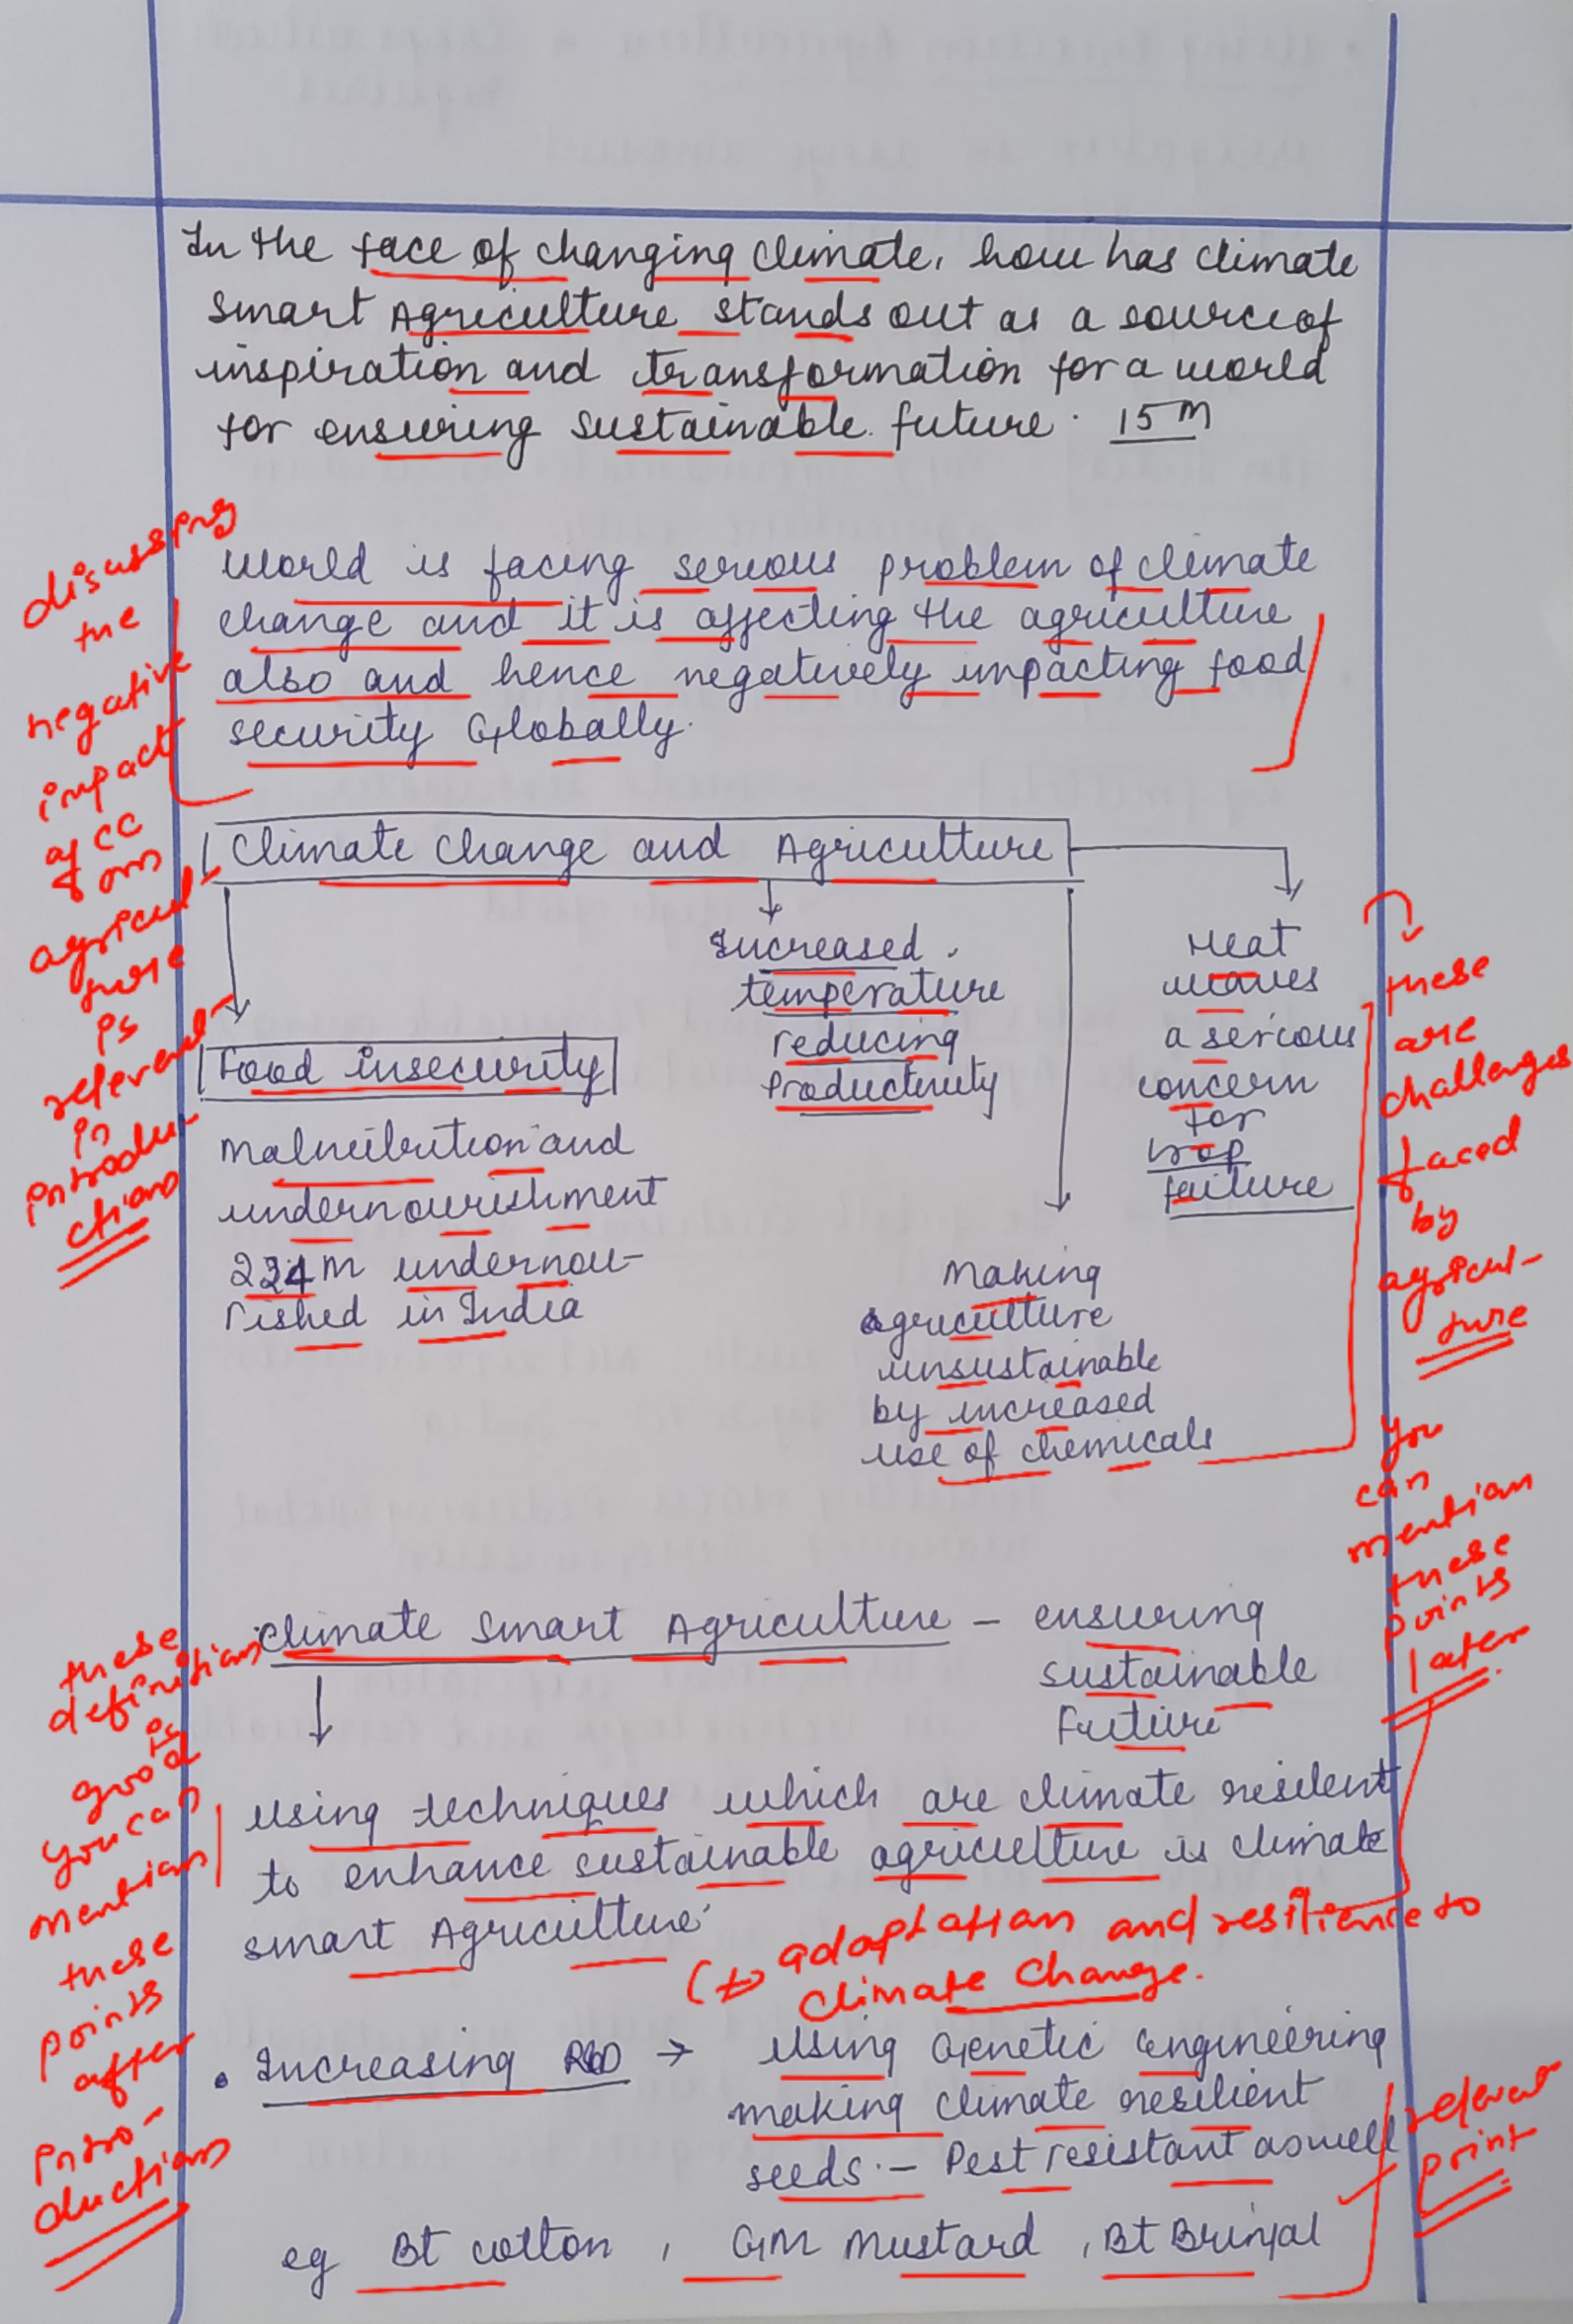 In the face of changing climate, how has climate
smart Agriculture stands out as a source of
inspiration and transformation for a world
for ensuring sustainable future. 15 M
discussing
the
negative
impact
of CC
on
agricul-
ture
is
relevant
in
introdu-
ction
World is facing serious problem of climate
change and it is affecting the agriculture
also and hence negatively impacting food
security Globally.
Climate Change and Agriculture
Food insecurity
Malnutrition and
undernourishment
224 M undernou-
rished in India
Increased
temperature
reducing
Productivity
Making
agriculture
unsustainable
by increased
use of chemicals
Heat
waves
a serious
concern
for
crop
failure
these
are
challenges
faced
by
agricul-
ture
you
can
mention
these
points
later
Climate Smart Agriculture - ensuring
sustainable
future
these
definition
is
good
you can
mention
these
points
after
intro-
duction
Using techniques which are climate resilent
to enhance sustainable agriculture is climate
smart Agriculture.
adaptation and resilience to
Climate Change.
• Increasing R&D → Using Genetic Engineering
making climate resilient
seeds. - Pest resistant as well
eg Bt cotton, GM Mustard, Bt Brinjal
relevant
point